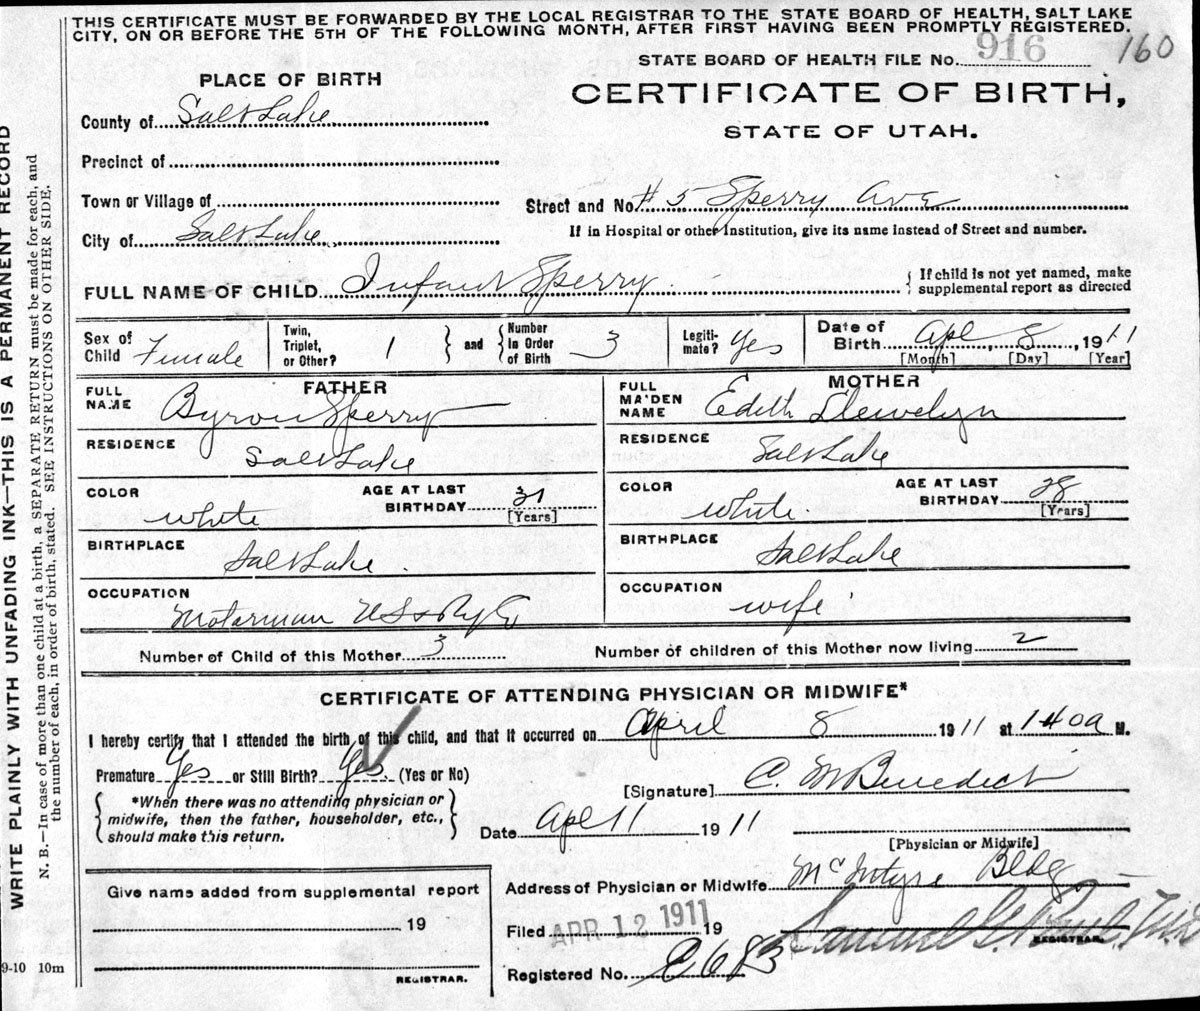 THIS CERTIFICATE MUST BE FORWARDED BY THE LOCAL REGISTRAR TO THE STATE BOARD OF HEALTH, SALT LAKE
CITY, ON OR BEFORE THE 5TH OF THE FOLLOWING MONTH, AFTER FIRST HAVING BEEN PROMPTLY REGISTERED.
STATE BOARD OF HEALTH FILE No. 916 160
PLACE OF BIRTH
CERTIFICATE OF BIRTH,
STATE OF UTAH.
County of Salt Lake
Precinct of
Town or Village of
Street and No. #5 Sperry Ave
City of Salt Lake
If in Hospital or other Institution, give its name instead of Street and number.
FULL NAME OF CHILD Infant Sperry
{ If child is not yet named, make
supplemental report as directed
Sex of Child Female
Twin, Triplet, or Other? 1 } and { Number In Order of Birth 3
Legiti-mate? Yes
Date of Birth Apl 8, 1911
[Month] [Day] [Year]
FATHER
FULL NAME Byron Sperry
MOTHER
FULL MAIDEN NAME Edith Llewelyn
RESIDENCE Salt Lake
RESIDENCE Salt Lake
COLOR white AGE AT LAST BIRTHDAY 31 [Years]
COLOR white AGE AT LAST BIRTHDAY 28 [Years]
BIRTHPLACE Salt Lake
BIRTHPLACE Salt Lake
OCCUPATION Motorman
OCCUPATION wife
Number of Child of this Mother 3 Number of children of this Mother now living 2
CERTIFICATE OF ATTENDING PHYSICIAN OR MIDWIFE*
I hereby certify that I attended the birth of this child, and that it occurred on April 8 1911 at 140a M.
Premature Yes or Still Birth? Yes. (Yes or No)
[Signature] C. M Benedict
{ *When there was no attending physician or
midwife, then the father, householder, etc.,
should make this return. }
Date Apl 11 1911
[Physician or Midwife]
Give name added from supplemental report
19
REGISTRAR.
Address of Physician or Midwife McIntyre Bldg
Filed APR 12 1911 19
REGISTRAR.
Registered No. 683
9-10 10m
WRITE PLAINLY WITH UNFADING INK—THIS IS A PERMANENT RECORD
N. B.—In case of more than one child at a birth, a SEPARATE RETURN must be made for each, and
the number of each, in order of birth, stated. SEE INSTRUCTIONS ON OTHER SIDE.